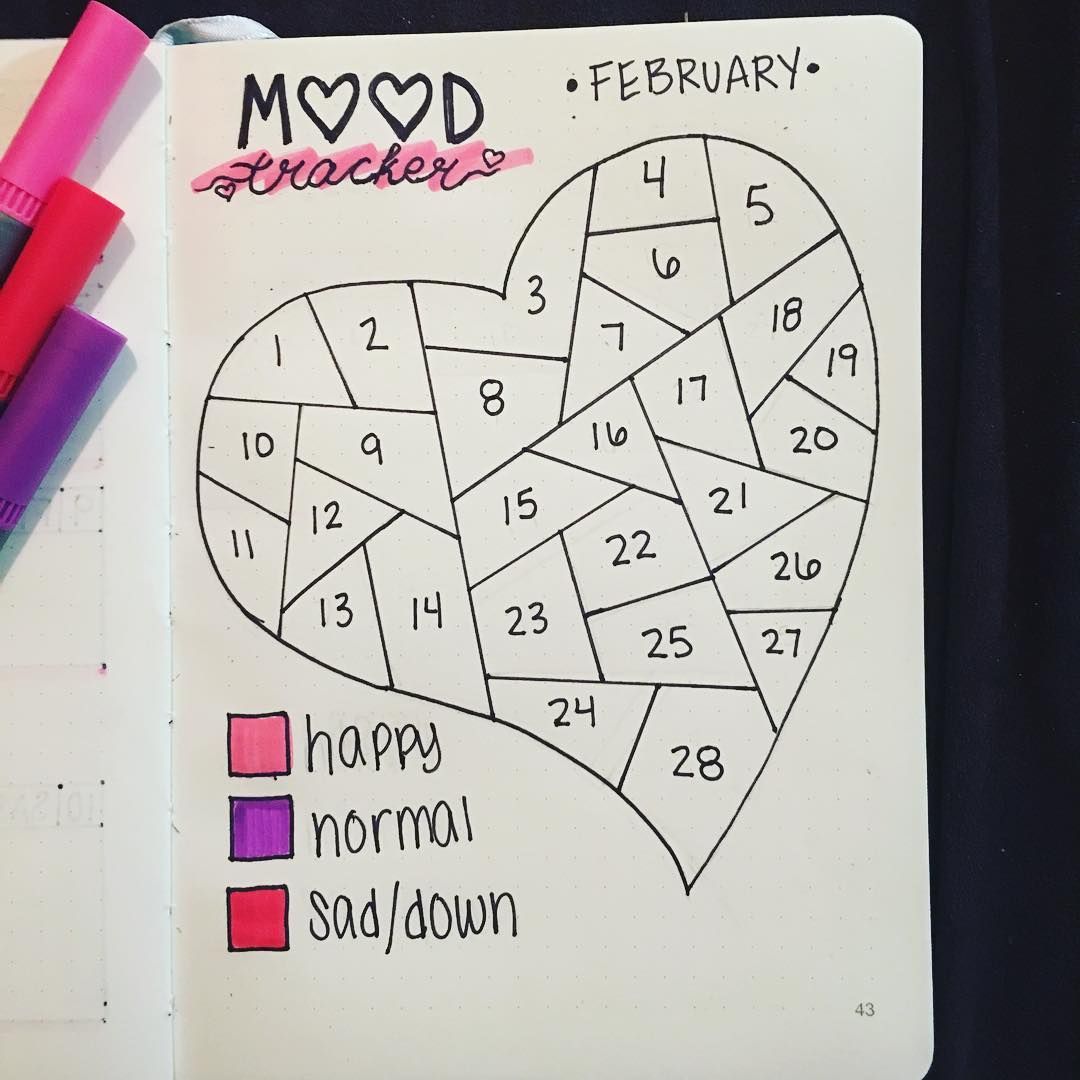 M♡♡D
tracker
• FEBRUARY •
1
2
3
4
5
6
7
8
9
10
11
12
13
14
15
16
17
18
19
20
21
22
23
24
25
26
27
28
happy
normal
sad/down
43